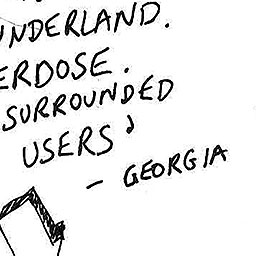 UNDERLAND.
ERDOSE.
SURROUNDED
USERS'
- GEORGIA